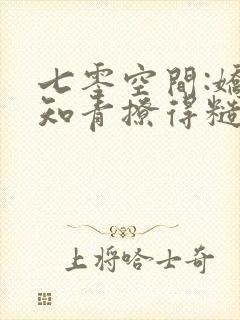 七零空间:嬌
知青撩得糙
上将哈士奇